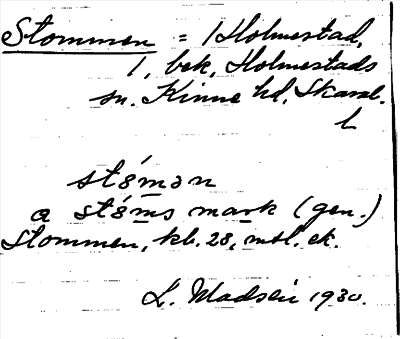 Stommen = 1 Holmestad,
1, bek, Holmestads
sn. Kinne hd, Skarab.
l
stǿmən
a stǿms mark (gen.)
Stommen, kb. 28, mtl. ek.
L. Madsén 1930.